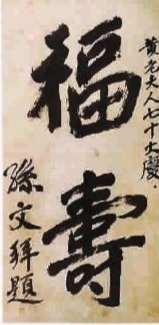 黄老夫人七十大慶
福壽
孫文拜題